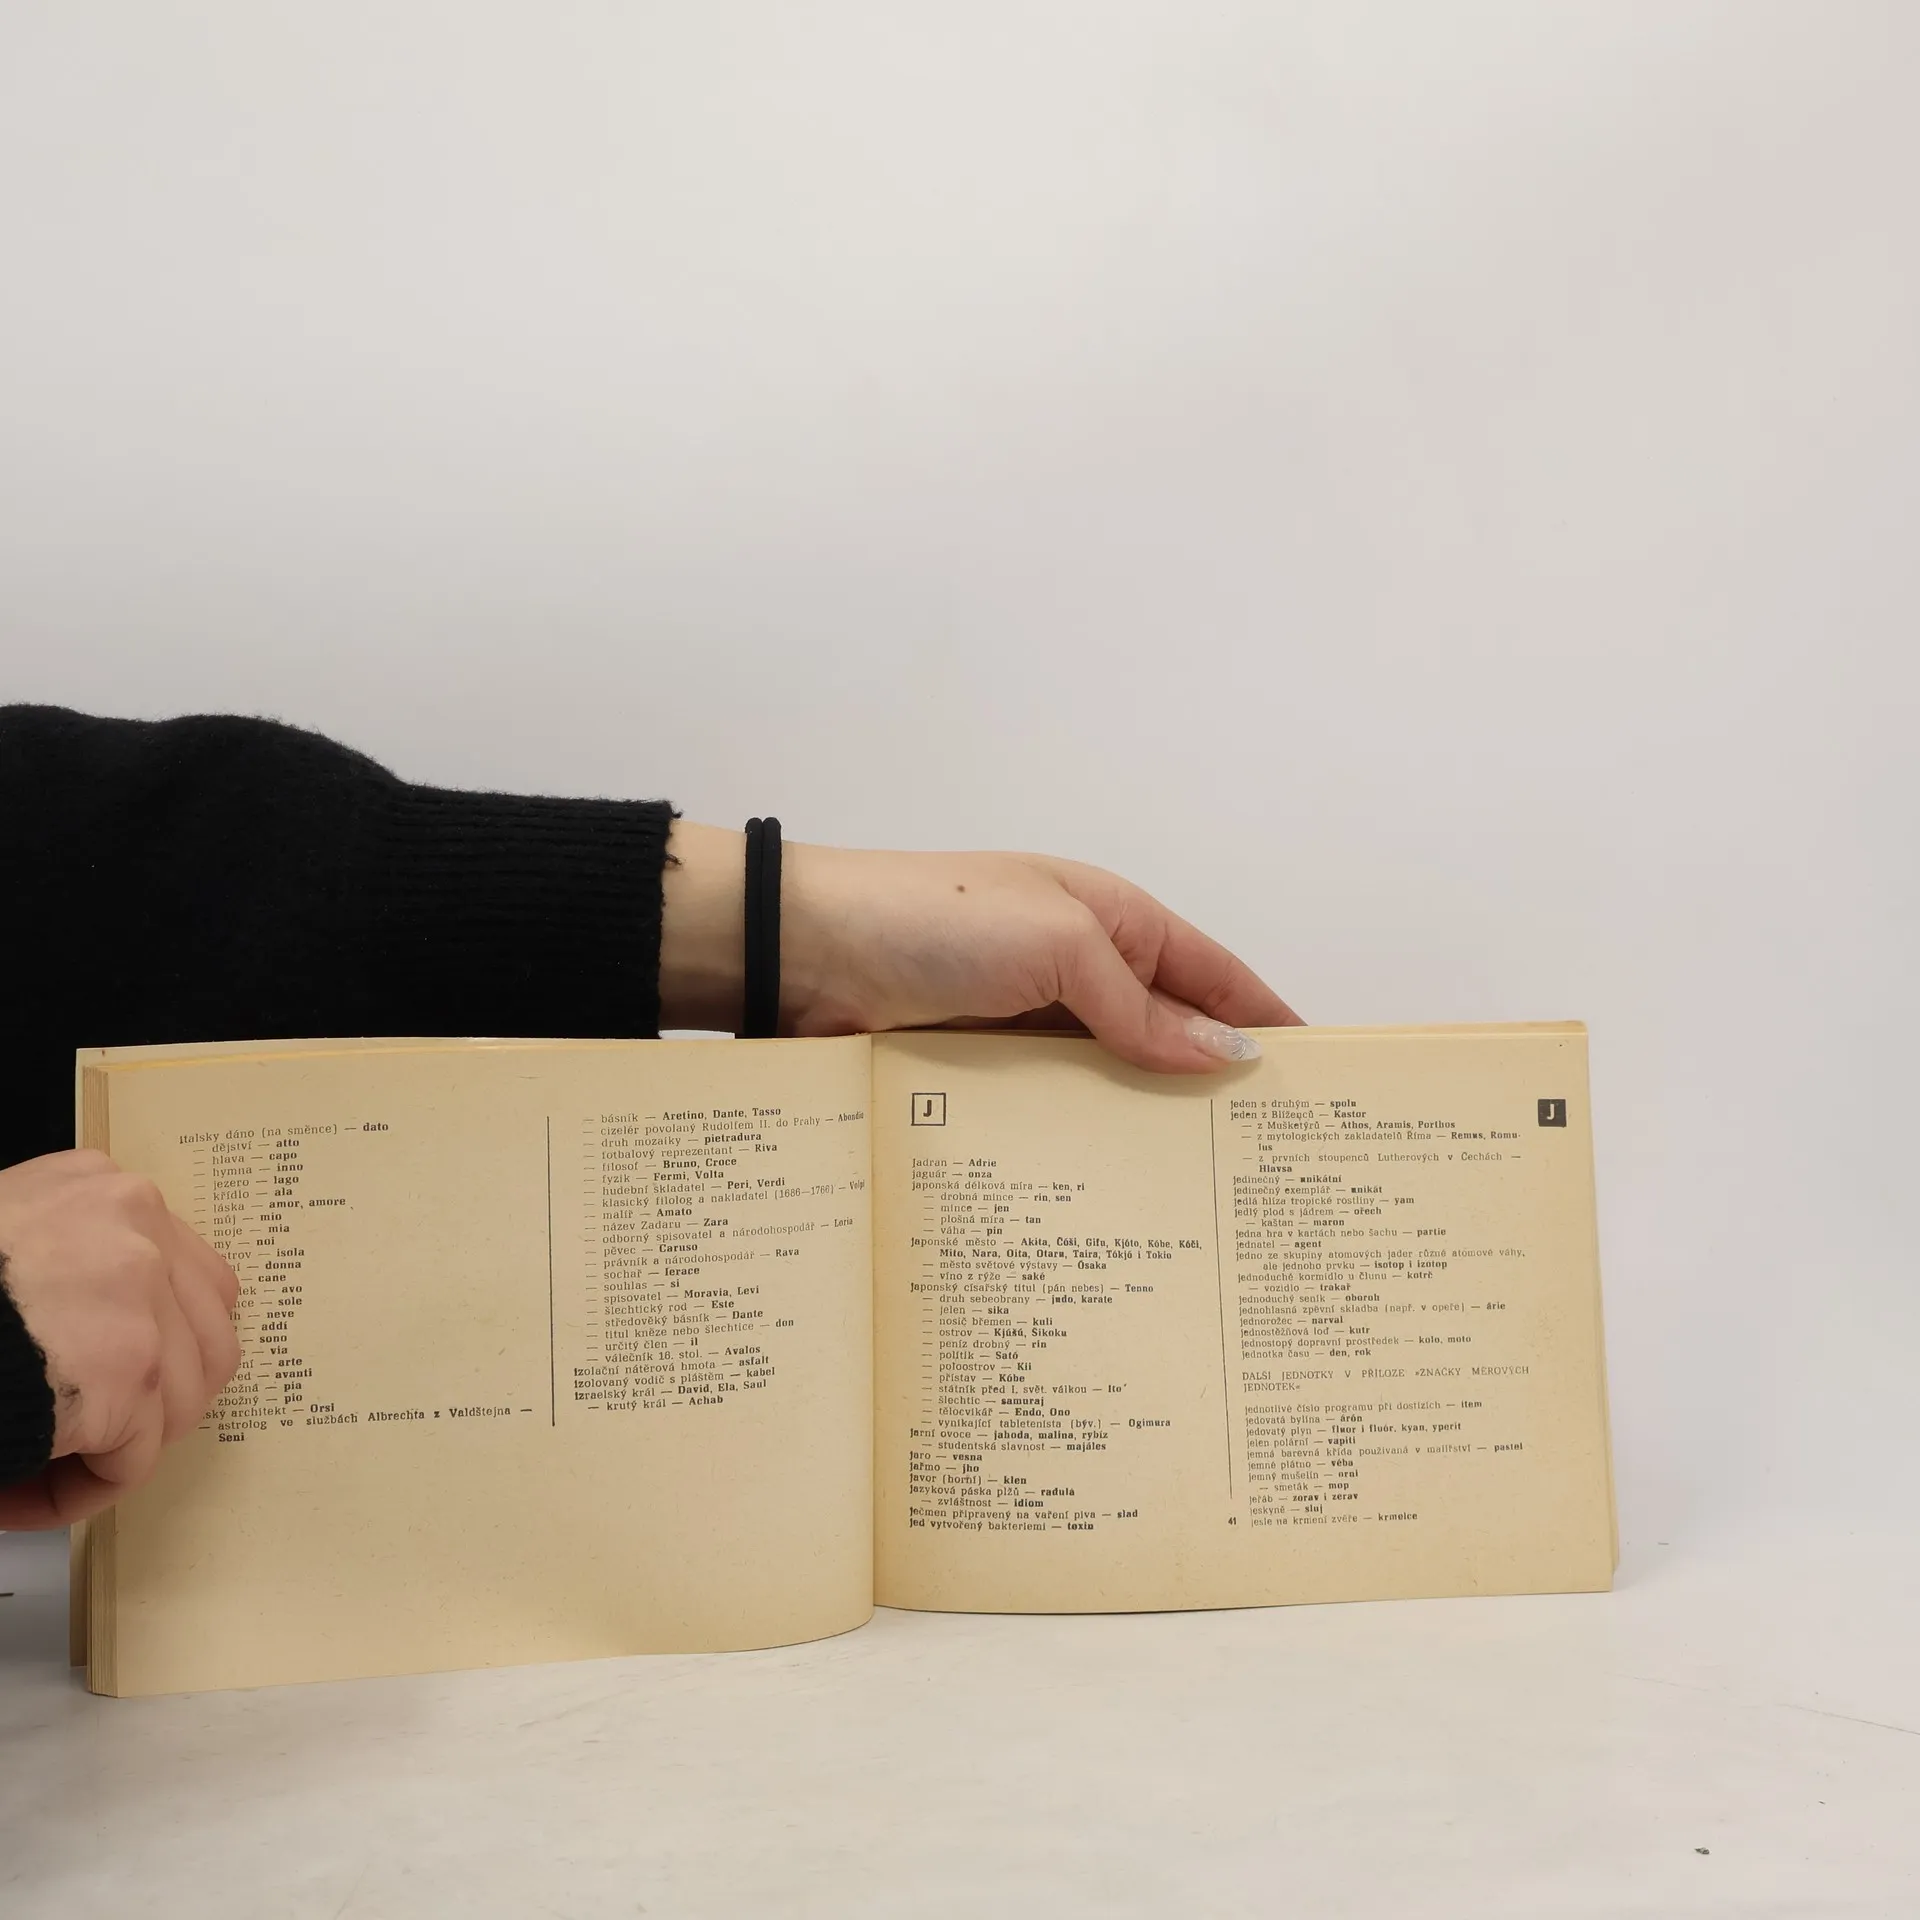 italsky dáno (na směnce) — dato
— dějství — atto
— hlava — capo
— hymna — inno
— jezero — lago
— křídlo — ala
— láska — amor, amore
— můj — mio
— moje — mia
my — noi
strov — isola
ní — donna
— cane
dek — avo
nce — sole
ih — neve
e — addi
— sono
e — via
ení — arte
red — avanti
zbožná — pia
zbožný — pio
ský architekt — Orsi
— astrolog ve službách Albrechta z Valdštejna —
Seni
— básník — Aretino, Dante, Tasso
— cizelér povolaný Rudolfem II. do Prahy — Abondio
— druh mozaiky — pietradura
— fotbalový reprezentant — Riva
— filosof — Bruno, Croce
— fyzik — Fermi, Volta
— hudební skladatel — Peri, Verdi
— klasický filolog a nakladatel (1686—1766) — Volpi
— malíř — Amato
— název Zadaru — Zara
— odborný spisovatel a národohospodář — Loria
— pěvec — Caruso
— právník a národohospodář — Rava
— sochař — Ierace
— souhlas — si
— spisovatel — Moravia, Levi
— šlechtický rod — Este
— středověký básník — Dante
— titul kněze nebo šlechtice — don
— určitý člen — il
— válečník 16. stol. — Avalos
izolační nátěrová hmota — asfalt
izolovaný vodič s pláštěm — kabel
izraelský král — David, Ela, Saul
— krutý král — Achab
J
Jadran — Adrie
jaguár — onza
japonská délková míra — ken, ri
— drobná mince — rin, sen
— mince — jen
— plošná míra — tan
— váha — pin
japonské město — Akita, Čóši, Gifu, Kjóto, Kóbe, Kóči,
Mito, Nara, Oita, Otaru, Taira, Tókjó i Tokio
— město světové výstavy — Ósaka
— víno z rýže — saké
japonský císařský titul (pán nebes) — Tenno
— druh sebeobrany — judo, karate
— jelen — sika
— nosič břemen — kuli
— ostrov — Kjúšú, Šikoku
— peníz drobný — rin
— politik — Sató
— poloostrov — Kii
— přístav — Kóbe
— státník před I. svět. válkou — Ito
— šlechtic — samuraj
— tělocvikář — Endo, Ono
— vynikající tabletenista (býv.) — Ogimura
jarní ovoce — jahoda, malina, rybíz
— studentská slavnost — majáles
jaro — vesna
jařmo — jho
javor (horní) — klen
jazyková páska plžů — radula
— zvláštnost — idiom
ječmen připravený na vaření piva — slad
jed vytvořený bakteriemi — toxin
jeden s druhým — spolu
jeden z Blíženců — Kastor
— z Mušketýrů — Athos, Aramis, Porthos
— z mytologických zakladatelů Říma — Remus, Romu-
lus
— z prvních stoupenců Lutherových v Čechách —
Hlavsa
jedinečný — unikátní
jedinečný exemplář — unikát
jedlá hlíza tropické rostliny — yam
jedlý plod s jádrem — ořech
— kaštan — maron
jedna hra v kartách nebo šachu — partie
jednatel — agent
jedno ze skupiny atomových jader různé atomové váhy,
ale jednoho prvku — isotop i izotop
jednoduché kormidlo u člunu — kotrč
— vozidlo — trakař
jednoduchý seník — oboroh
jednohlasná zpěvní skladba (např. v opeře) — árie
jednorožec — narval
jednostěžňová loď — kutr
jednostopý dopravní prostředek — kolo, moto
jednotka času — den, rok
DALŠÍ JEDNOTKY V PŘÍLOZE »ZNAČKY MĚROVÝCH
JEDNOTEK«
jednotlivé číslo programu při dostizích — item
jedovatá bylina — árón
jedovatý plyn — fluor i fluór, kyan, yperit
jelen polární — vapiti
jemná barevná křída používaná v malířství — pastel
jemné plátno — véba
jemný mušelín — orni
— smeták — mop
jeřáb — zorav i zerav
jeskyně — sluj
jesle na krmení zvěře — krmelce
J
41